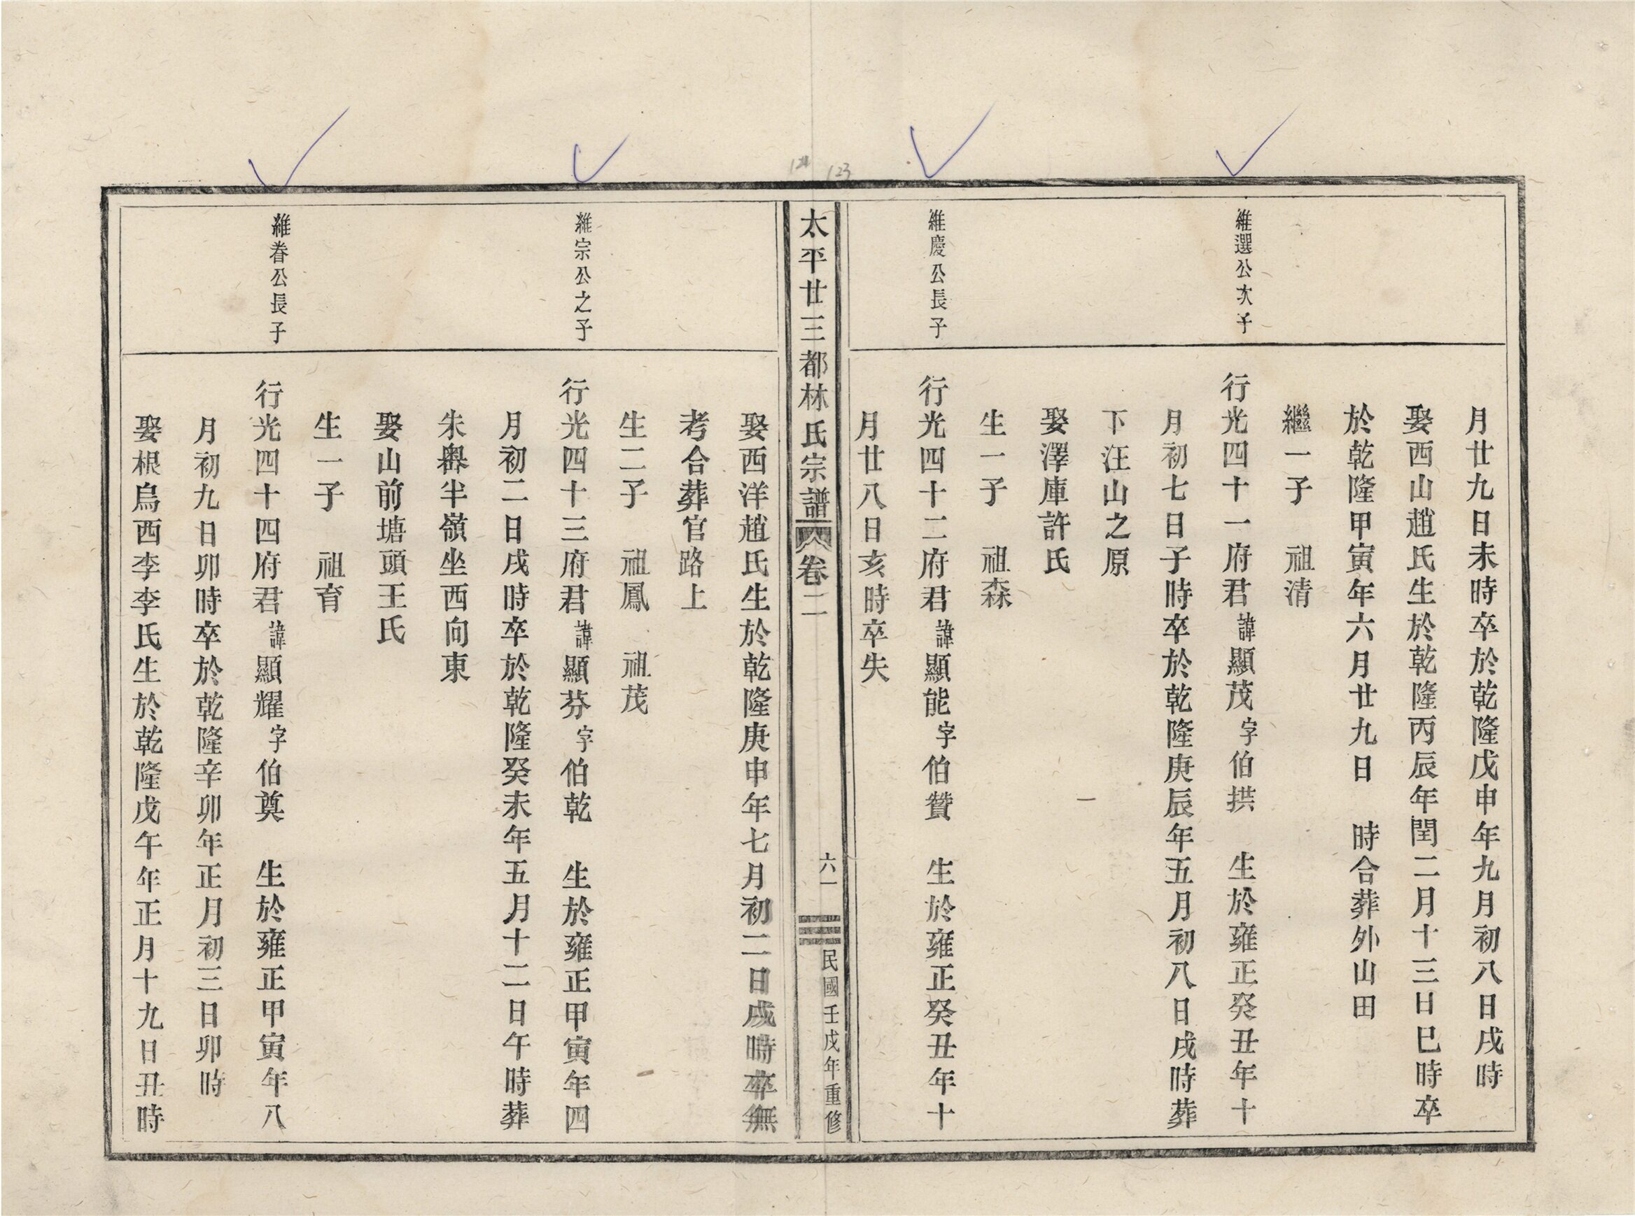 月廿九日未時卒於乾隆戊申年九月初八日戌時
娶西山趙氏生於乾隆丙辰年閏二月十三日巳時卒
於乾隆甲寅年六月廿九日　時合葬外山田
繼一子　祖清
維選公次子
行光四十一府君諱顯茂字伯拱　生於雍正癸丑年十
月初七日子時卒於乾隆庚辰年五月初八日戌時葬
下汪山之原
娶澤庫許氏
生一子　祖森
維慶公長子
行光四十二府君諱顯能字伯贊　生於雍正癸丑年十
月廿八日亥時卒失
太平廿三都林氏宗譜　卷二
六一
民國壬戌年重修
123
124
娶西洋趙氏生於乾隆庚申年七月初二日戌時卒無
考合葬官路上
生二子　祖鳳　祖茂
維宗公之子
行光四十三府君諱顯芬字伯乾　生於雍正甲寅年四
月初二日戌時卒於乾隆癸未年五月十二日午時葬
朱㟁半嶺坐西向東
娶山前塘頭王氏
生一子　祖育
維眷公長子
行光四十四府君諱顯耀字伯奠　生於雍正甲寅年八
月初九日卯時卒於乾隆辛卯年正月初三日卯時
娶根烏西李李氏生於乾隆戊午年正月十九日丑時